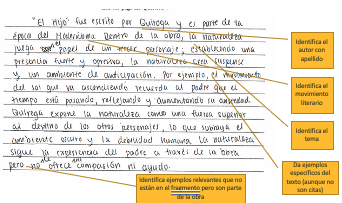 "El Hijo" fue escrito por Quiroga y es parte de la
época del Modernismo. Dentro de la obra, la naturaleza
juega el papel de un tercer personaje, estableciendo una
presencia fuerte y opresiva, la naturaleza crea suspense
y un ambiente de anticipación. Por ejemplo, el movimiento
del sol que va ascendiendo recuerda al padre que el
tiempo está pasando, reflejando y aumentando su ansiedad.
Quiroga expone la naturaleza como una fuerza superior
al destino de los otros personajes, lo que subraya el
ambiente oscuro y la debilidad humana. La naturaleza
sigue la experiencia del padre a través de la obra
pero no ofrece compasión ni ayuda.
Identifica el
autor con
apellido
Identifica el
movimiento
literario
Identifica el
tema
Da ejemplos
específicos del
texto (aunque no
son citas)
Identifica ejemplos relevantes que no
están en el fragmento pero son parte
de la obra